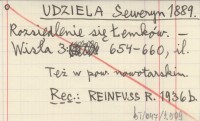 UDZIELA Seweryn 1889.
Rozsiedlenie się Łemków. –
Wisła 3: 654–660, il.
Też w pow. nowotarskim.
Rec.: REINFUSS R. 1936 b.